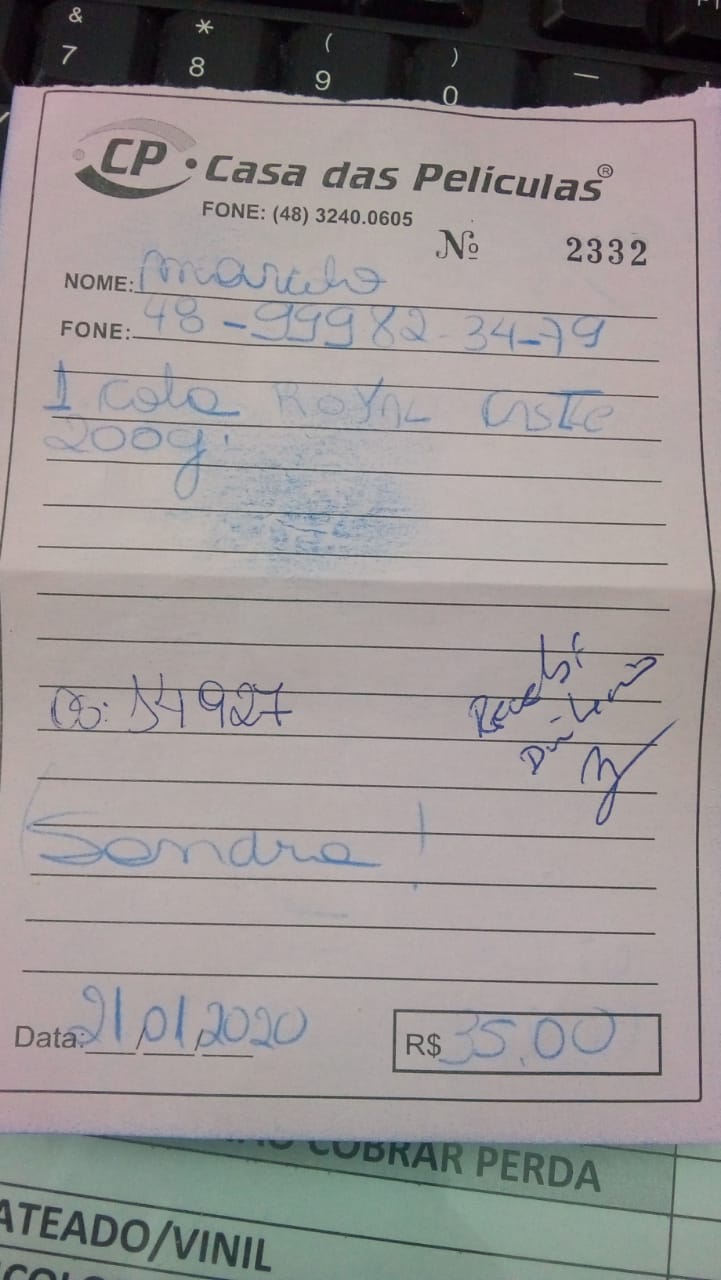 &
7
*
8
(
9
)
0
—
CP • Casa das Películas®
FONE: (48) 3240.0605
Nº 2332
NOME: Marcelo
FONE: 48-99982-34-79
1 cola ROYAL
200g.
54927
Recebi
Dinheiro
Sandra!
Data: 21/01/2020
R$ 35,00
COBRAR PERDA
ATEADO/VINIL